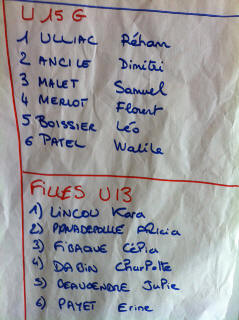 U 15 G
1 ULLIAC Réhan
2 ANCILE Dimitri
3 MALET Samuel
4 MERLOT Florent
5 BOISSIER Léo
6 PATEL Walile
FILLES U13
1) LINCOU Kara
2) Alicia
3) FIBAQUE Célia
4) DABIN Charlotte
5) Julie
6) PAYET Erine